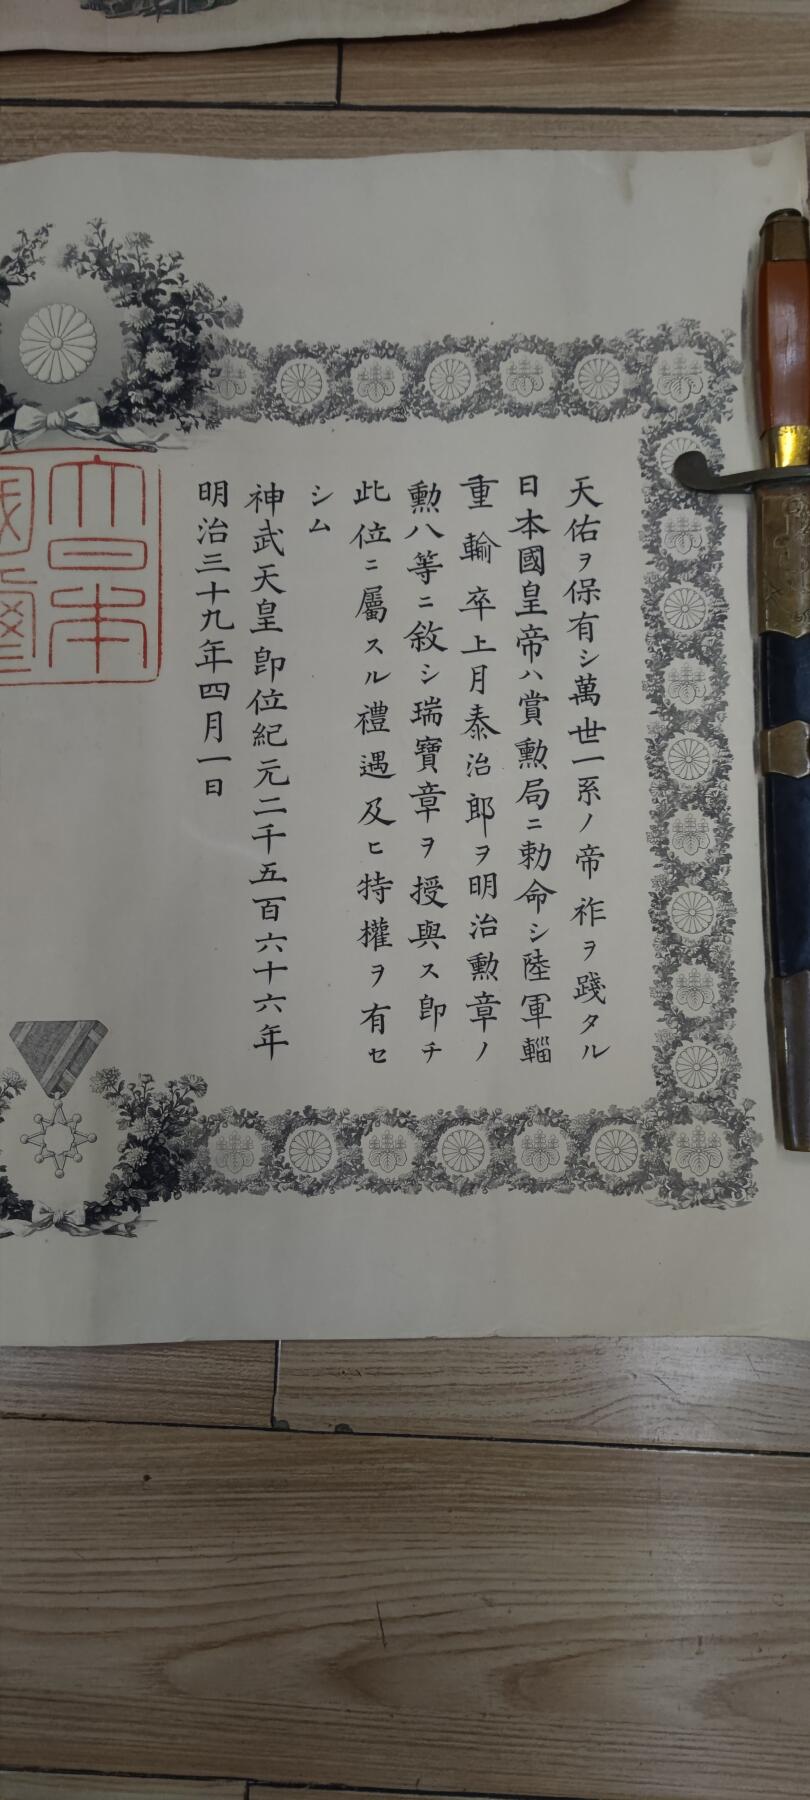 天佑ヲ保有シ萬世一系ノ帝祚ヲ踐タル
日本國皇帝ハ賞勲局ニ勅命シ陸軍輜
重輸卒上月泰治郎ヲ明治勲章ノ
勲八等ニ敘シ瑞寶章ヲ授與ス即チ
此位ニ屬スル禮遇及ヒ特權ヲ有セ
シム
神武天皇即位紀元二千五百六十六年
明治三十九年四月一日
大日本
國璽